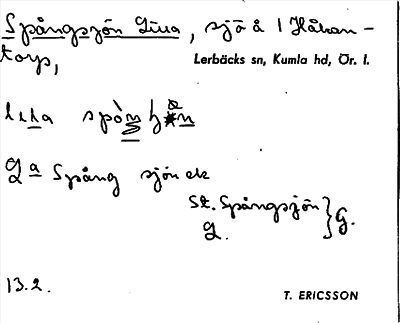 Spångsjön Lilla, sjö å 1 Håkan-
torp,
Lerbäcks sn, Kumla hd, Ör. l.
lıla
Spång sjön etc
St. Spångsjön } G.
L.
13.2.
T. ERICSSON